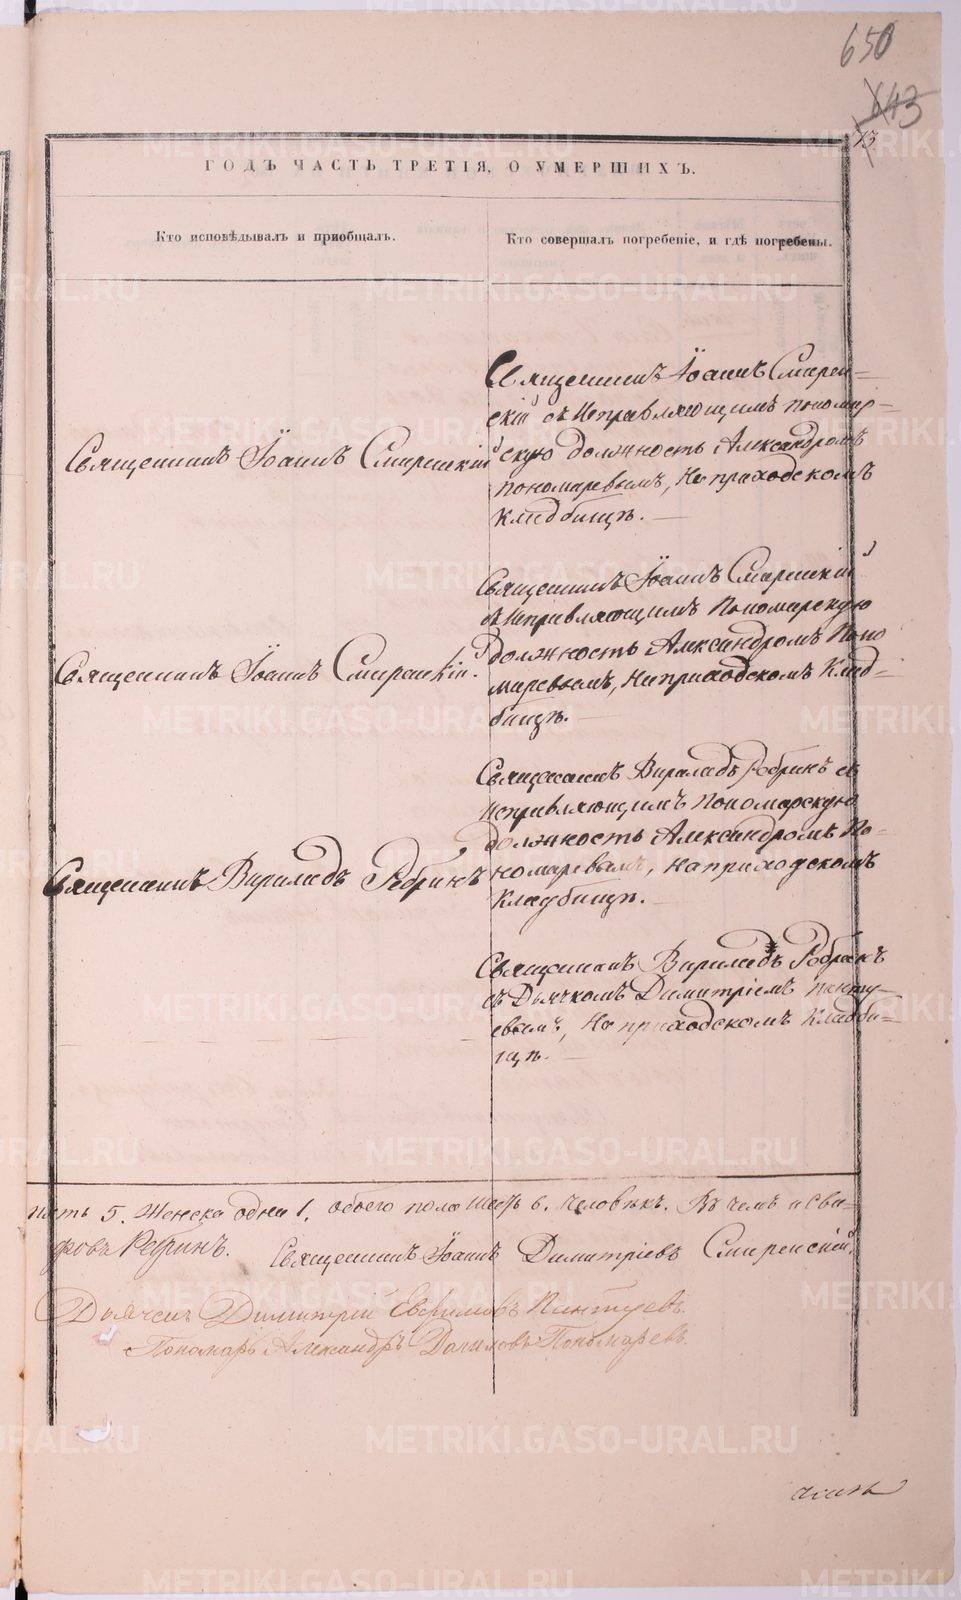 650
643
13
ГОДЪ ЧАСТЬ ТРЕТІЯ, О УМЕРШИХЪ.
Кто исповѣдывалъ и приобщалъ.
Кто совершалъ погребеніе, и гдѣ погребены.
Священникъ Іоаннъ Смиренскій
Священникъ Іоаннъ Смирен-
скій съ Исправляющимъ пономар-
скую должность Александромъ
пономаревымъ, На приходскомъ
Кладбищѣ.
Священникъ Іоаннъ Смиренскій.
Священникъ Іоаннъ Смиренскій
съ Исправляющимъ Пономарскую
должность Александромъ Поно
маревымъ, На приходскомъ Клад-
бищѣ.
Священникъ Вириладъ Ребринъ
Священникъ Вириладъ Ребринъ съ
Исправляющимъ Пономарскую
должность Александромъ По-
номаревымъ, На приходскомъ
Кладбищѣ.
Священникъ Вириладъ Ребринъ
съ Дьячкомъ Димитріемъ Панту-
евымъ, На приходскомъ Кладби-
щѣ.
пять 5. Женска одна 1, обоего пола шесть 6. человѣкъ. Въ чемъ и сви-
Ребринъ. Священникъ Іоаннъ Димитріевъ Смиренскій.
Дьячекъ Димитрій Евфимовъ Пантуевъ.
Пономарь Александръ Даниловъ Пономаревъ
METRIKI.GASO-URAL.RU